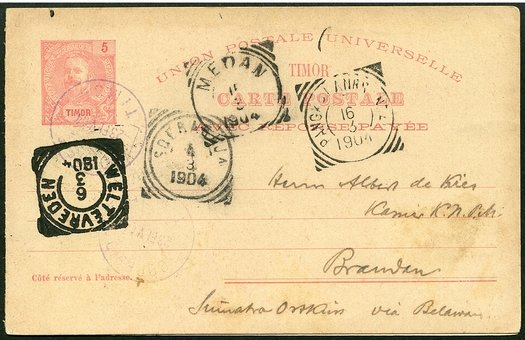 5
UNION POSTALE UNIVERSELLE
TIMOR
CARTE POSTALE
AVEC RÉPONSE PAYÉE
TIMOR
MEDAN
1904
16
3
1904
4
3
1904
WELTEVREDEN
6
3
1904
Herrn Albert de Kries
Brandan
Côté réservé à l'adresse.
Sumatra Ostküste via Belawan